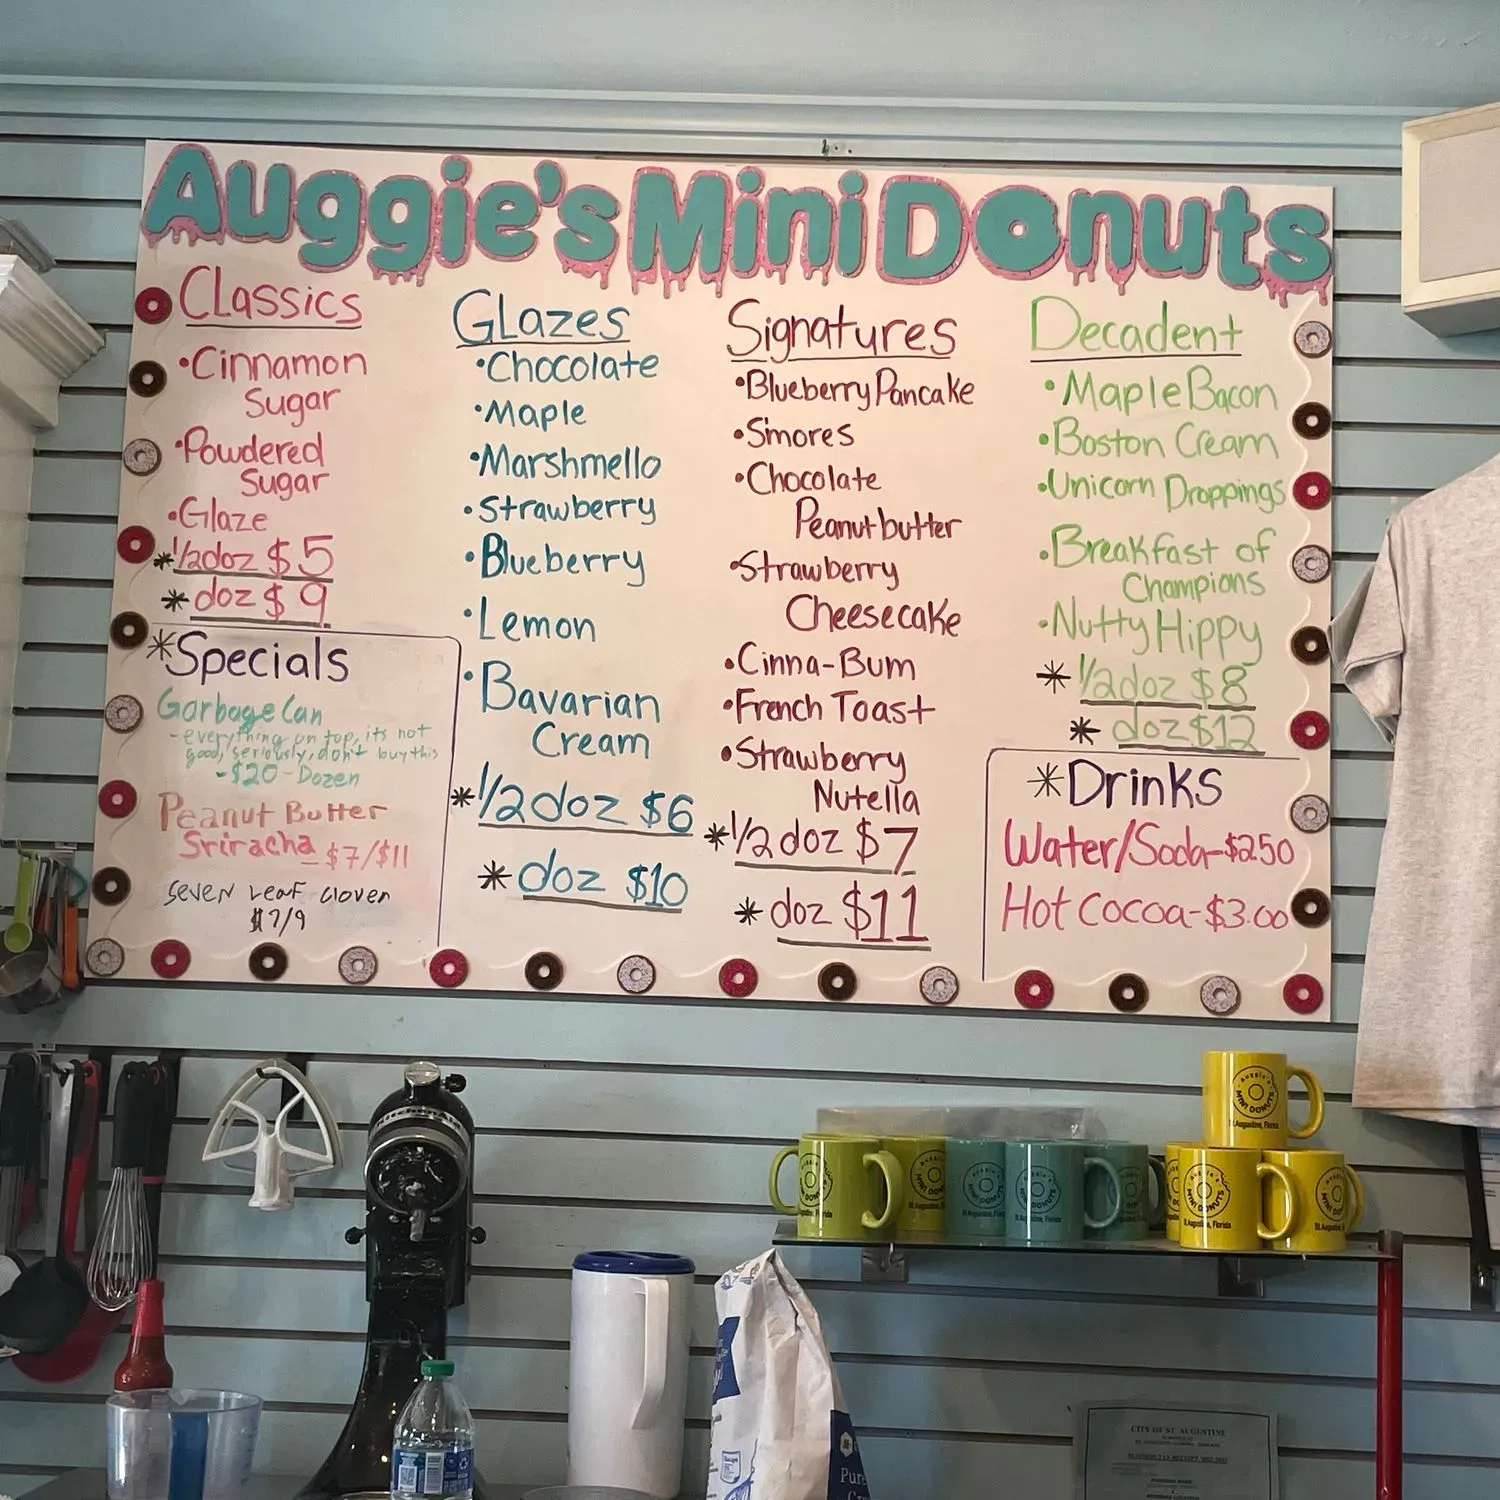 Auggie's Mini Donuts
Classics
•Cinnamon
Sugar
•Powdered
Sugar
•Glaze
*1/2doz $5
*doz $9
*Specials
Garbage Can
-everything on top, its not
good, seriously, don't buy this
-$20-Dozen
Peanut Butter
Sriracha-$7/$11
Seven Leaf Clover
$7/9
Glazes
•Chocolate
•Maple
•Marshmello
•Strawberry
•Blueberry
•Lemon
•Bavarian
Cream
*1/2doz $6
*doz $10
Signatures
•Blueberry Pancake
•S'mores
•Chocolate
Peanutbutter
•Strawberry
Cheesecake
•Cinna-Bum
•French Toast
•Strawberry
Nutella
*1/2 doz $7
*doz $11
Decadent
•Maple Bacon
•Boston Cream
•Unicorn Droppings
•Breakfast of
Champions
•Nutty Hippy
*1/2doz $8
*doz $12
*Drinks
Water/Soda-$2.50
Hot Cocoa-$3.00
KitchenAid
Auggie's
MINI DONUTS
St.Augustine, Florida
Auggie's
MINI DONUTS
St.Augustine, Florida
Auggie's
MINI DONUTS
St.Augustine, Florida
Pure
CITY OF ST. AUGUSTINE